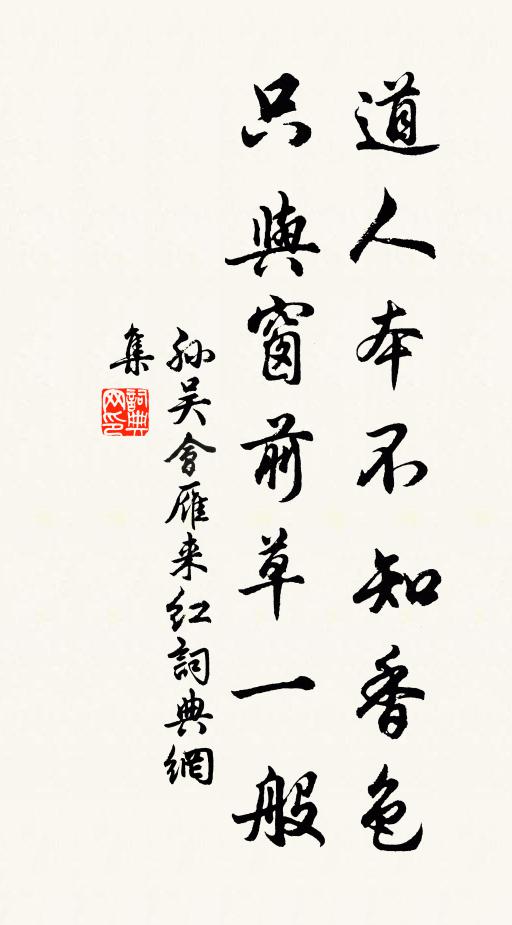 道人本不知香色
只與窗前草一般
孙吴會雁来红詞典網
集
詞典
网印